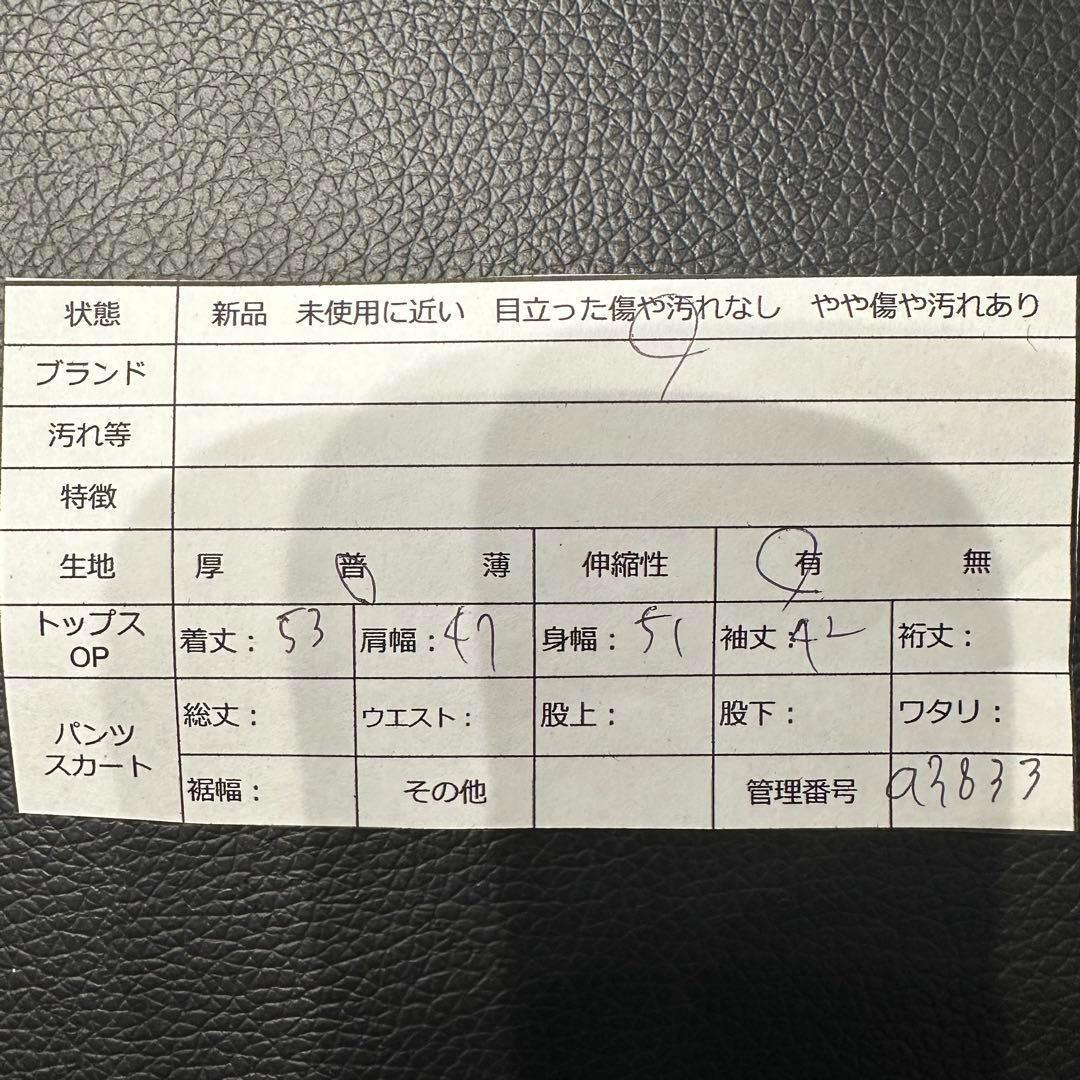 状態 新品 未使用に近い 目立った傷や汚れなし やや傷や汚れあり
ブランド
汚れ等
特徴
生地 厚 普 薄 伸縮性 有 無
トップス OP 着丈：53 肩幅：47 身幅：51 袖丈：42 裄丈：
パンツ スカート 総丈： ウエスト： 股上： 股下： ワタリ：
裾幅： その他 管理番号 a3833